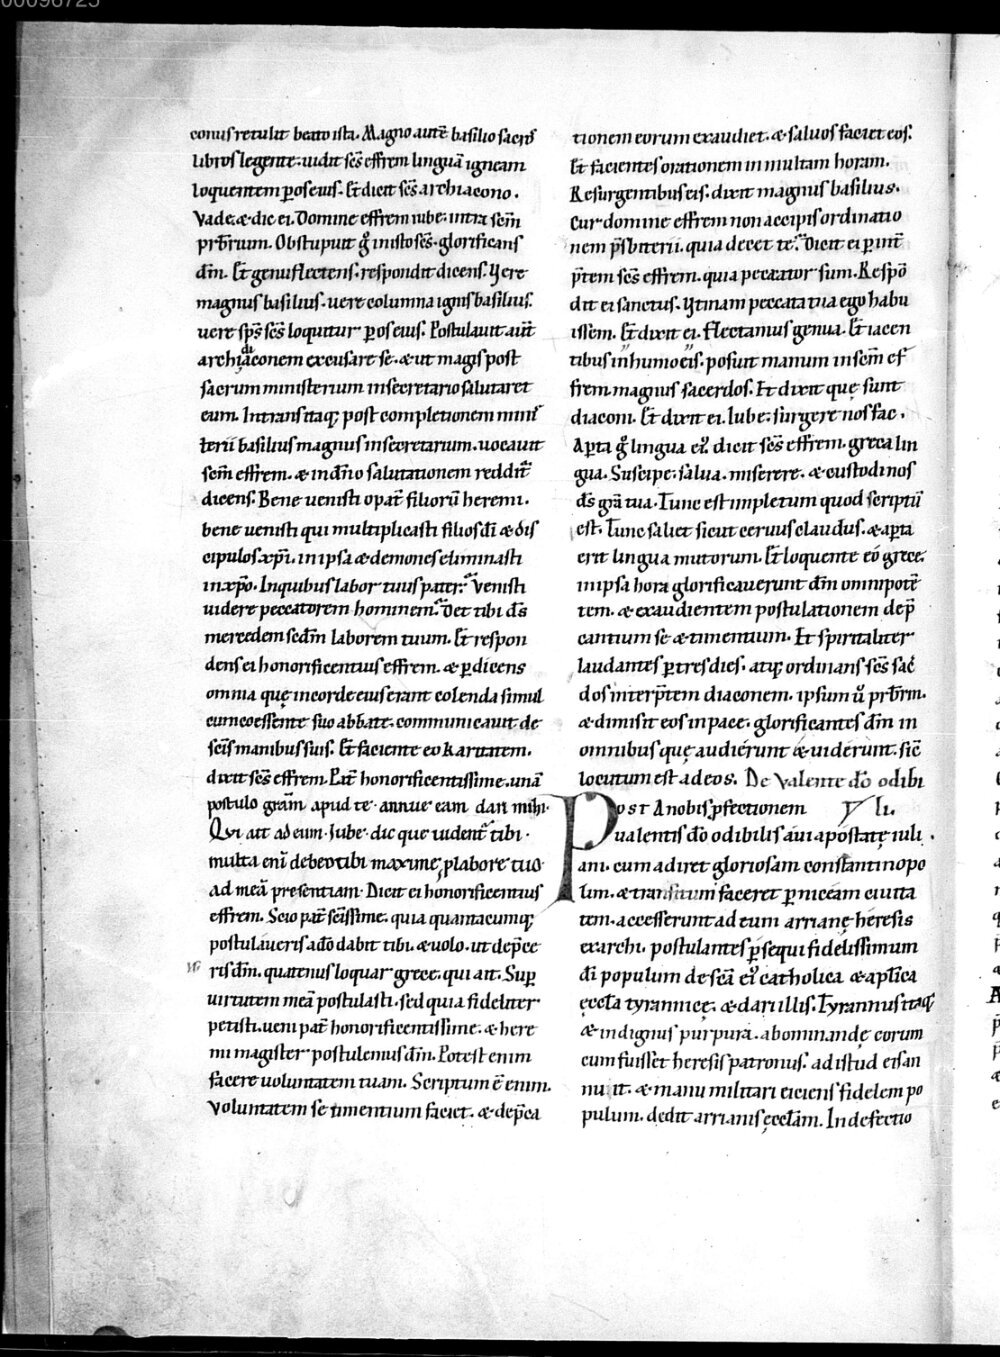 00096725
conus retulit beato ista. Magno autē basilio sacros
libros legente. uidit scs̄ effrem linguā igneam
loquentem p os eius. Et dicit scs̄ archiacono.
Vade. & dic ei. Domine effrem iube. intra scm̄
prb̄rium. Obstupuit g̊ in isto scs̄. glorificans
dm̄. Et genuflectens. respondit dicens. Vere
magnus basilius. uere columna ignis basilius.
uere sps̄ scs̄ loquitur p os eius. Postulauit aut̄
archidiaconem excusare se. & ut magis post
sacrum ministerium in secretario salutaret
eum. Intrans itaq; post completionem minis
terii basilius magnus in secretarium. uocauit
scm̄ effrem. & in dn̄o salutationem reddit
dicens. Bene uenisti o pat̄ filiorū heremi.
bene uenisti qui multiplicasti filios dī & dis
cipulos xp̄i. in ipsa & demones eliminasti
in xp̄o. In quibus labor tuus pater. Venisti
uidere peccatorem hominem. Det tibi ds̄
mercedem scdm̄ laborem tuum. Et respon
dens ei honorificentius effrem. & p dicens
omnia quę in corde eius erant colenda simul
cum coessente suo abbate. communicauit de
scīs manibus suis. Et faciente eo karitatem.
dixit scs̄ effrem. Pat̄ honorificentissime. unā
postulo grām apud te. annue eam dari mihi.
Qui ait ad eum. Iube. dic que uidentr̄ tibi.
multa enī debeo tibi maxime, p labore tuo.
ad meā presentiam. Dicit ei honorificentius
effrem. Scio pat̄ scīssime. quia quantacumq;
postulaueris a dō dabit tibi. & uolo. ut dep̄ce
ris dm̄. quatenus loquar grece. qui ait. Sup
uirtutem meā postulasti. sed quia fideliter
petisti. ueni pat̄ honorificentissime. & here
mi magister postulemus dm̄. Potest enim
facere uoluntatem tuam. Scriptum ē enim.
Voluntatem se timentium faciet. & dep̄ca
tionem eorum exaudiet. & saluos faciet eos.
Et facientes orationem in multam horam.
Resurgentibus eis. dixit magnus basilius.
Cur domine effrem non accipis ordinatio
nem p̄sbiterii. quia decet te. Dicit ei p int̄
p̄tem scs̄ effrem. quia peccator sum. Respō
dit ei sanctus. Vtinam peccata tua ego habu
issem. Et dixit ei. Flectamus genua. Et iacen
tibus in humo eis. posuit manum in scm̄ ef
frem magnus sacerdos. Et dixit quę sunt
diaconi. Et dixit ei. Iube. surgere nos fac.
Apta g̊ lingua ei. dicit scs̄ effrem. greca lin
gua. Suscipe. salua. miserere. & custodi nos
ds̄ grā tua. Tunc est impletum quod scriptū
est. Tunc saliet sicut ceruus claudus. & apta
erit lingua mutorum. Et loquente eo grece.
in ipsa hora glorificauerunt dm̄ omnipotē
tem. & exaudientem postulationem dep̄
cantium se & timentium. Et spiritaliter
laudantes p tres dies. atq; ordinans scs̄ sac̄
dos interp̄tem diaconem. ipsum ū prb̄rm.
& dimisit eos in pace. glorificantes dm̄ in
omnibus quę audierunt & uiderunt. sic
locutum est ad eos. De Valente dō odibi
Post A nobis, pfectionem
li.
ualentis dō odibilis aui apostatę iuli
ani. cum adiret gloriosam constantinopo
lim. & transitum faceret p niceam ciuita
tem. accesserunt ad eum arrianę heresis
exarchi. postulantes p sequi fidelissimum
dī populum de scā ei catholica & aplīca
ęccl̄a tyrannicę. & dari illis. Tyrannus itaq;
& indignus purpura. abominandę eorum
cum fuisset heresis patronus. ad istud eis an
nuit. & manu militari eiciens fidelem po
pulum. dedit arrianis ęccl̄am. In defectio